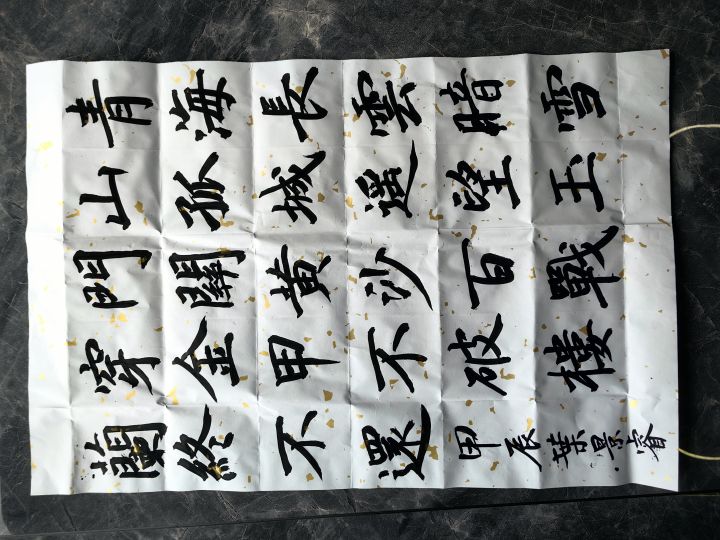 青海長雲暗雪
山孤城遥望玉
門關黃沙百戰
穿金甲不破樓
蘭終不還 甲辰葉景睿